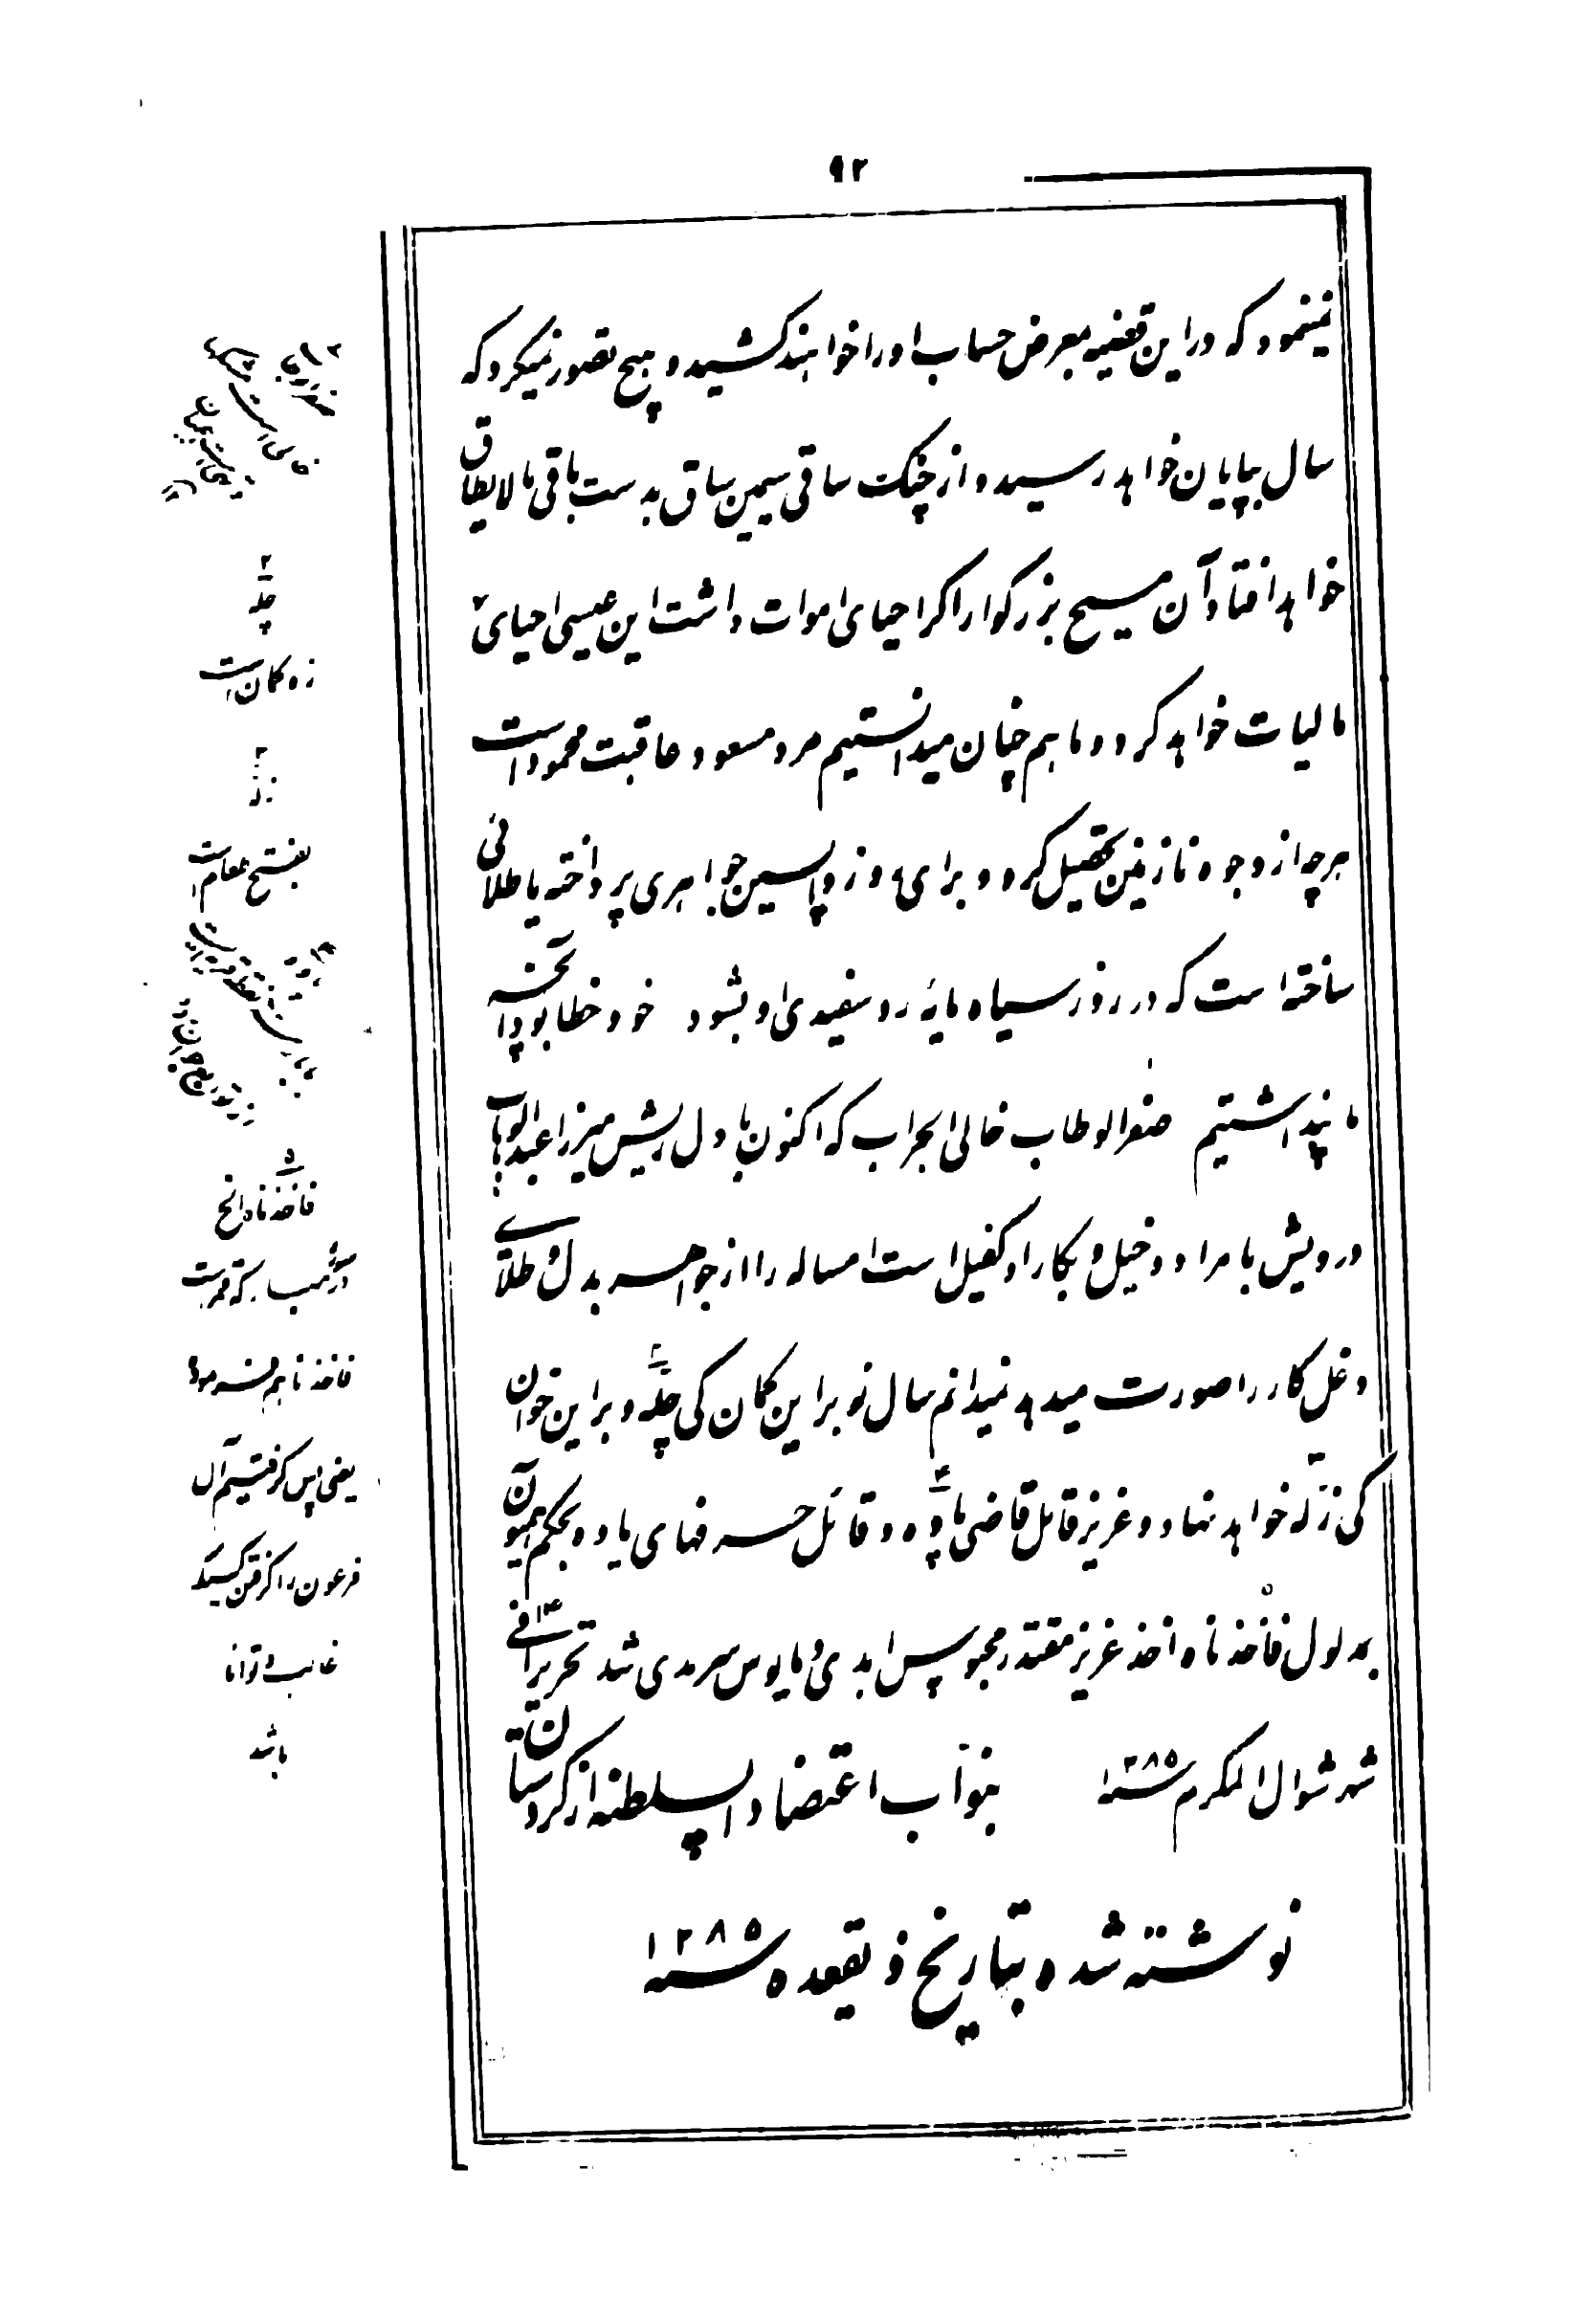 ۹۲
نمینمود که در این قضیه بمعرض حساب او را خواهند کشید و هیچ تصور نمیکرد که
سال بپایان خواهد رسید و از چنک ساقی سیمین ساق بدست باقی مالایطاق
خواهد افتاد آن مسیح بزرکوار اکر احیای اموات داشت این عیسی احیای
مالیات خواهد کرد و ما هم چنان میدانستیم مرد مسعود عاقبت محمود است
هر چه از وجوه نازنین تحصیل کرده برای روز واپسین جواهری پرداخته یا طلائی
ساخته است که در روز سیاه مایهٔ رو سفیدی او بشود خود خطا بود آنچه
ما پنداشتیم صفر الوطاب خالی الجراب که اکنون با دل ریش میرزا عبدالوهاب
درویش بامراد دخیل و بکار او کفیل است امساله را از جواهر بدل و طلای
دغل کار را صورت میدهد نمیدانم سال نو بر این کمان کی چله و بر این خوان
کی زله خواهد نهاد و عزیز قاتل قاضی پاوه و قائل حرفهای یاوه بحکم همیون
بمدلول فاخذناه اخذ عزیز مقتدر محبوس ابدی و مایوس سرمدی شد تحریرا فی
شهر شوال المکرم سنه ۱۲۸۵ بنوآب اعتضاد السلطنه از کردستان
نوشته شده بتاریخ ذیقعده سنه ۱۲۸۵
۲
چله
زه کمان است
۳
زله
بفتح طعام است
۵
فاخذناه الخ
در سورهٔ قمر است
یعنی پس کرفتیم آل
فرعون را کرفتن کسیکه
غالب و توانا
باشد